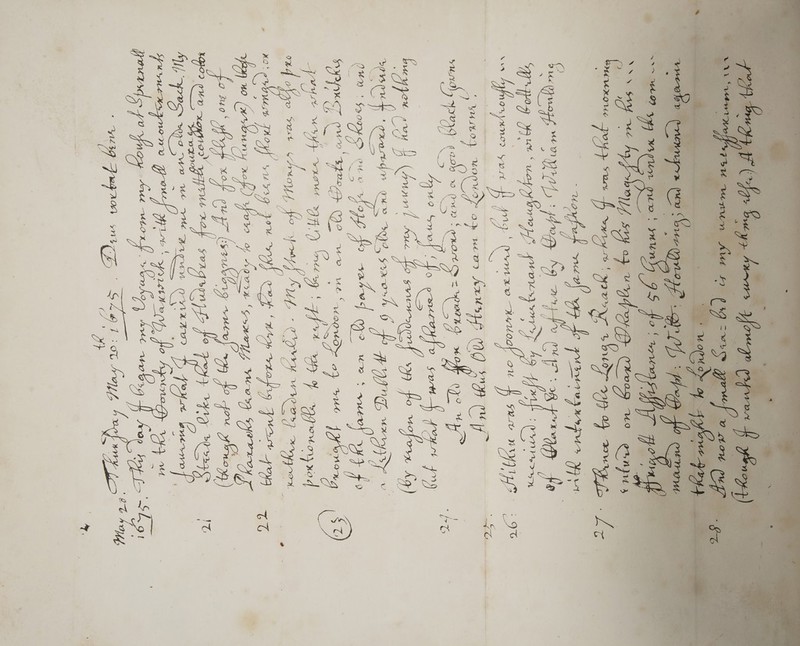 May 20: Thursday May 20th: 1675. Deus vortat bene.
1675. This day I began my Voyage from my house at Spernall
in the County of Warwick; with small accoutrements
saving what I carried under me in an olde sack. My
21 Steede like that of Hudibras for mettle, courage, and color
(though not of the same biggnes) And for flesh, one of
22 Pharaohs leane Mares, ready to ceaze (for hunger) on those
that went before her, had shee not beene short wingd. or
rather leaden heeled. My stock of Moneys was also pro
portionable to the rest; being little more then what
(23) brought me to London, in an old Coate, and Britches
of the same; an old payer of Hose and Shooes, and
a Lethern Dublitt of 9 yeares olde and upward. Indeede
(by reason of the suddennes of my jurney) I had nothing
but what I was ashamed of, save only
24. An old Fox broade=Sword; and a good black Gowne
And thus Old Henry cam to London towne.
25.
26: Hither was I no sooner arived but I was courteously
received: first by Leiutenant Haughton, with bottells
of Claret &c: And after by Capt: William Houlding
with entertainment of the same fashion.
27. Thence to the Longe Reach, where I was that morning
enterd on board Chaplen to his Magesty in his
Frigott Assistance; of 56 Gunns; and under the com
maund of Capt: Will: Houlding; and returned againe
that night to London.
28. And now a small Sea=bed is my unum nessessarium,
(though I wanted almost every thing else) A thing that